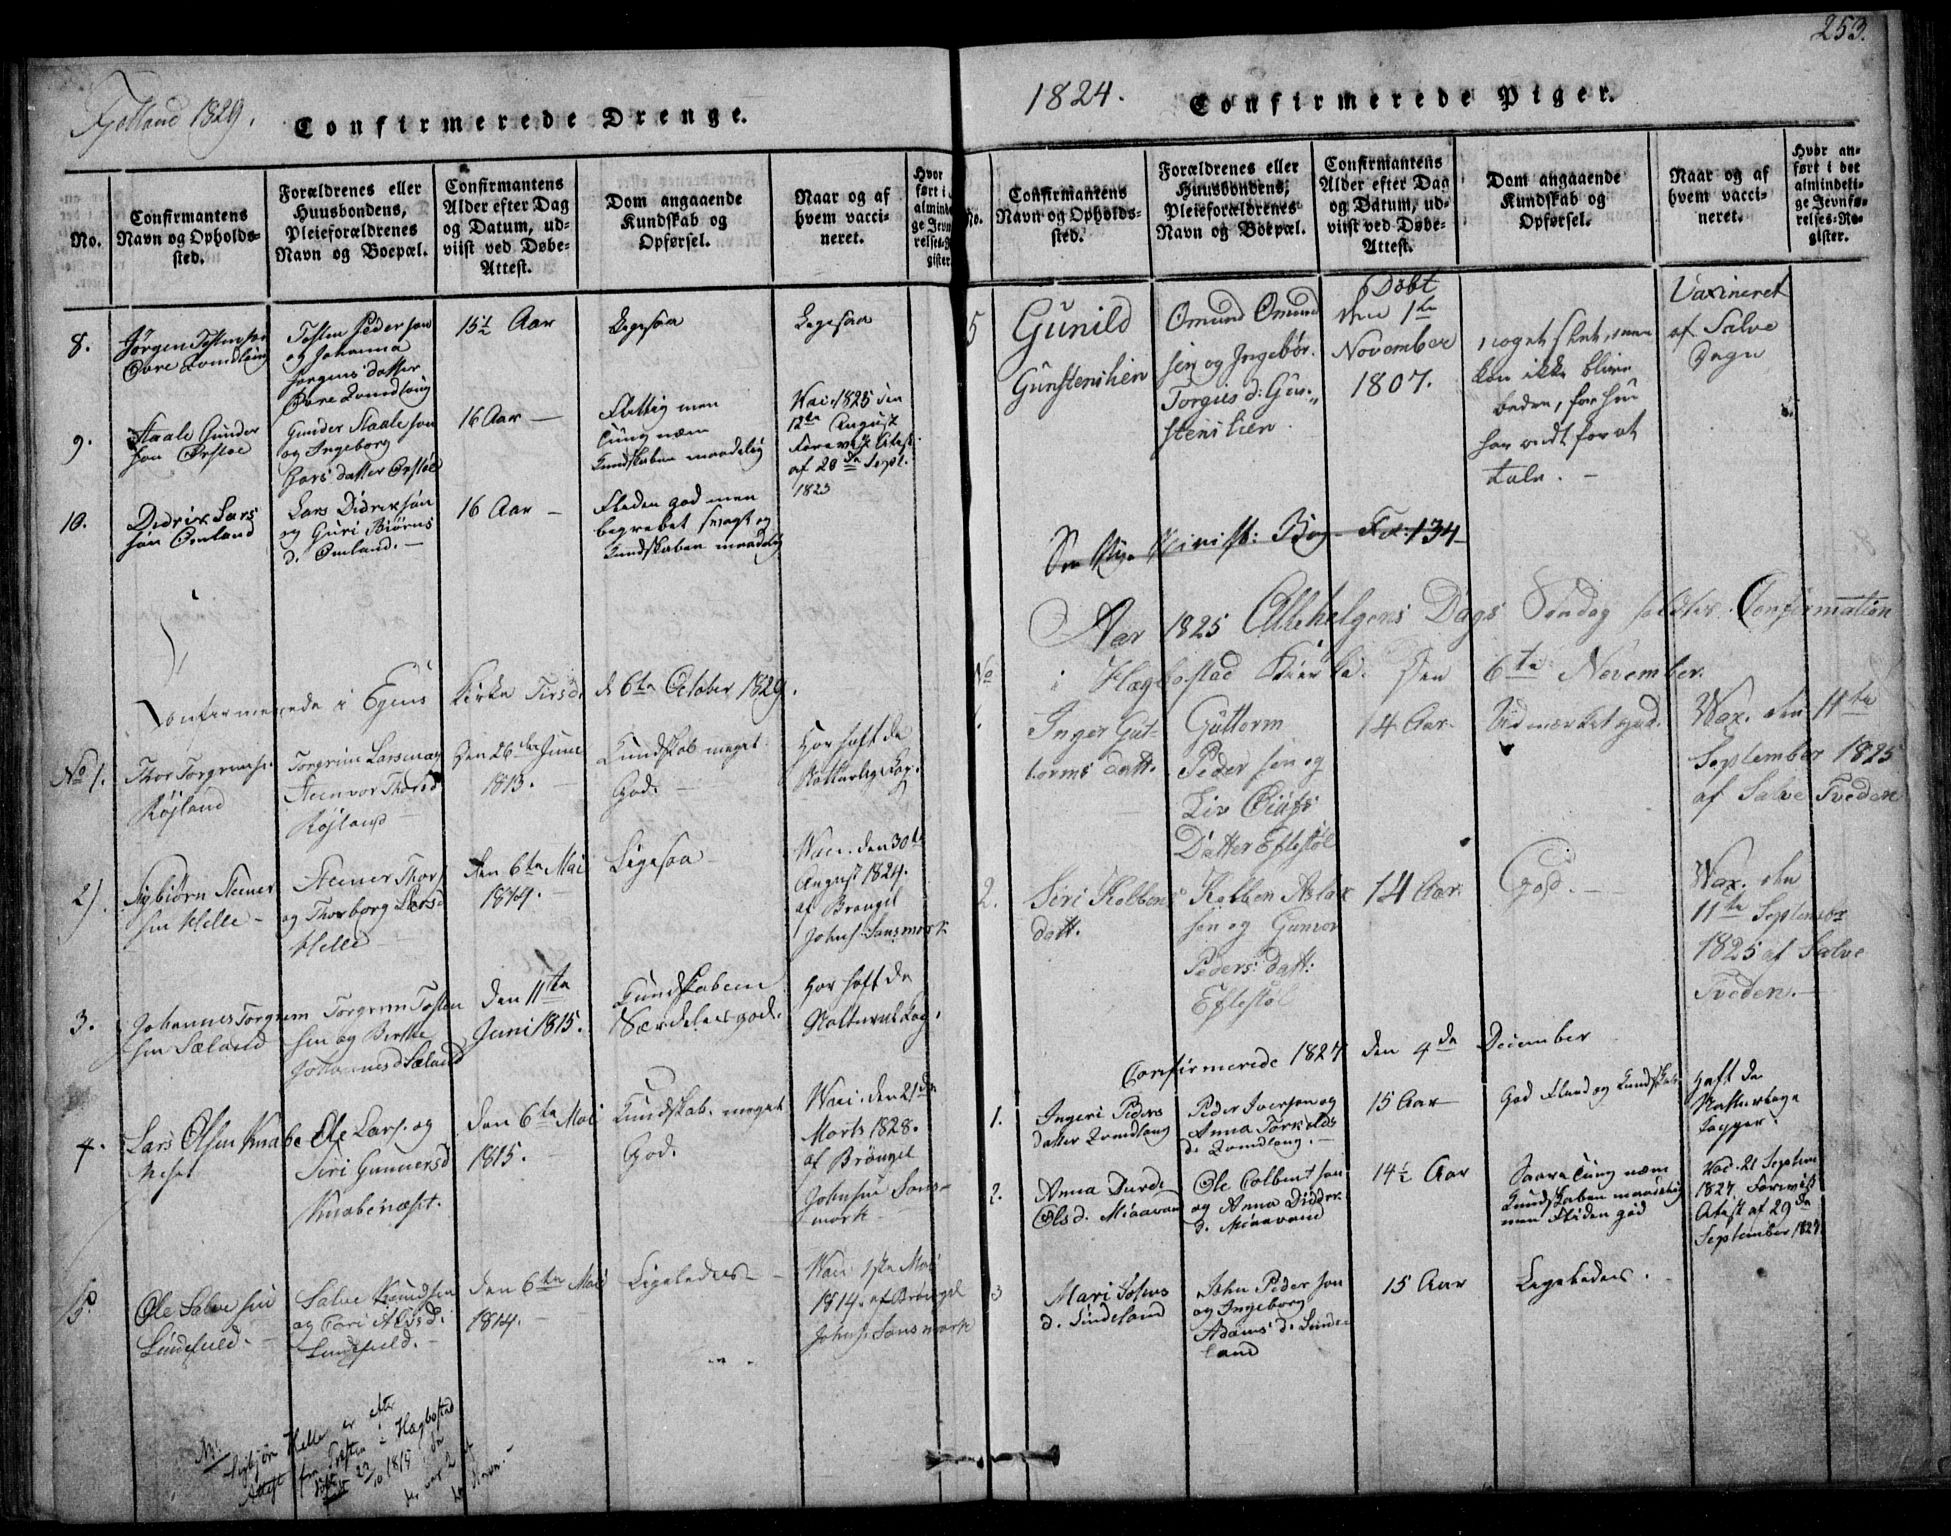 Fjotland 1829.
Confirmerede Drenge.
No.
Confirmantens
Navn og Opholds-
sted.
Forældrenes eller
Huusbondens,
Pleieforældrenes
Navn og Boepæl.
Confirmantens
Alder efter Dag
og Datum, ud-
viist ved Døbe-
Attest.
Dom angaaende
Kundskab og
Opførsel.
Naar og af
hvem vacci-
neret.
Hvor
ført i
alminde
ge Jevn
relses-R
gister
8.
Jørgen Tostensen
Øvre Qvindlaug
Tosten Pedersøn
og Johanna
Jørgens datter
Øvre
15½ Aar
Ligesaa
Ligesaa
9.
Staale Gunder
søn
Gunder Staalesøn
og Ingeborg
Lars' datter
16 Aar —
Flittig men
tung nem
Kundskaben maadelig
Vac. 1825 den
12te August
Forevist Attest
af 28de Sept.
1825
10.
Didrix Lars
søn Omland
Lars Didrixsøn
og Guri Biørns
d. Omland. —
16 Aar —
Fliden god men
begrebet svagt og
Kundskaben maadelig
Confirmerede i Egens Kirke Tirsd. d 6te October 1829.
No 1.
Thor Torgrimsen
Røjland
Torgrim Larsen og
Steenvor Thorsd
Røjland —
Den 26de Juni
1813. —
Kundskab meget
God. —
Har haft de
Naturlige Kop.
2).
Sigbiørn Steener
sen Helle —
Steener Thors
og Thorborg Larsd
Helle —
Den 6te Mai
1814. —
Ligesaa —
Vacc. den 30te
August 1824.
af Brøngel
Johns. Sansmork
3.
Johannes Torgrim
sen Sæland
Torgrim Tosten
sen og Birthe
Johannesd Sæland
Den 11te
Juni 1815.
Kundskaben
Særdeles god.
Har haft de
Naturl. Kop.
4.
Lars Olsen Knabe
Neset
Ole Lars. og
Siri Gunnersd
Knabenæset.
Den 6te Mai
1815. —
Kundskab. meget
God.
Vacc. den 21de
Marts 1828.
af Brøngel
Johnsen Sans-
mork —
5.
Ole Salvesen
Lindefield. —
Salve Knudsen
og Tori Alfsd.
Lindefield. —
Den 6te Mai
1814. —
Ligeledes —
Vacc. Mai
1814. af Brøngel
Johns. Sansmork
Sigbjørn Helle er efter
Attest fra Præsten i Hægbostad
døbt 22/10 1815, da
der var 2 af
1824.
Confirmerede Piger.
253.
No.
Confirmantens
Navn og Opholds-
sted.
Forældrenes eller
Huusbondens,
Pleieforældrenes
Navn og Boepæl.
Confirmantens
Alder efter Dag
og Datum, ud-
viist ved Døbe-
Attest.
Dom angaaende
Kundskab og
Opførsel.
Naar og af
hvem vacci-
neret.
Hvor an-
ført i det
almindeli-
ge Jevnfø-
relses-Re-
gister.
5
Gunild
Gunstenslien
Omund Omund
sen og Ingebør.
Torgus d: Gun-
stenslien.
Døbt
den 1te
November
1807.
noget slet, men
kan ikke blive
bedre, for hun
har ondt for at
tale. —
Vaxineret
af Salve
Minist: Bog Fol: 134
Aar 1825 Allehelgens Dags Søndag holdtes Confirmation
i Hægbostad Kierke. den 6te November.
No
1.
Inger Gut-
torms datt.
Guttorm
Peder sen og
Liv Olufs
Datter Eftestøl
14 Aar.
Udmærket god.
Vax. den 11te
September 1825
af Salve Tveden
2.
Siri Kolbens
datt.
Kolben Aslax
sen og Gunvor
Peders: datt:
Eftestøl
14 Aar.
God. —
Vax. den
11te Septembr
1825 af Salve
Tveden. —
Confirmerede 1827 den 4de December
1.
Ingeri Peders
datter Qvindlaug
Peder Iversøn og
Anna Torkelds
d. Qvindlaug. —
15 Aar
God Fliid og Kundskab
Haft de
Naturlige
Kopper.
2.
Anna Durde
Olsd. Miaavand
Ole Colbentsøn
og Anna Didder.
d. Miaavand
14½ Aar
Saare tung nem
Kundskaben maadelig
men Fliden god
Vac. 21 Septem
1827. Forevist
Attest af 29de
September 1827.
3
Mari Johns
d. Sindeland
John Pedersøn
og Ingeborg
Adams' d. Sinde
land
15 Aar
Ligeledes.